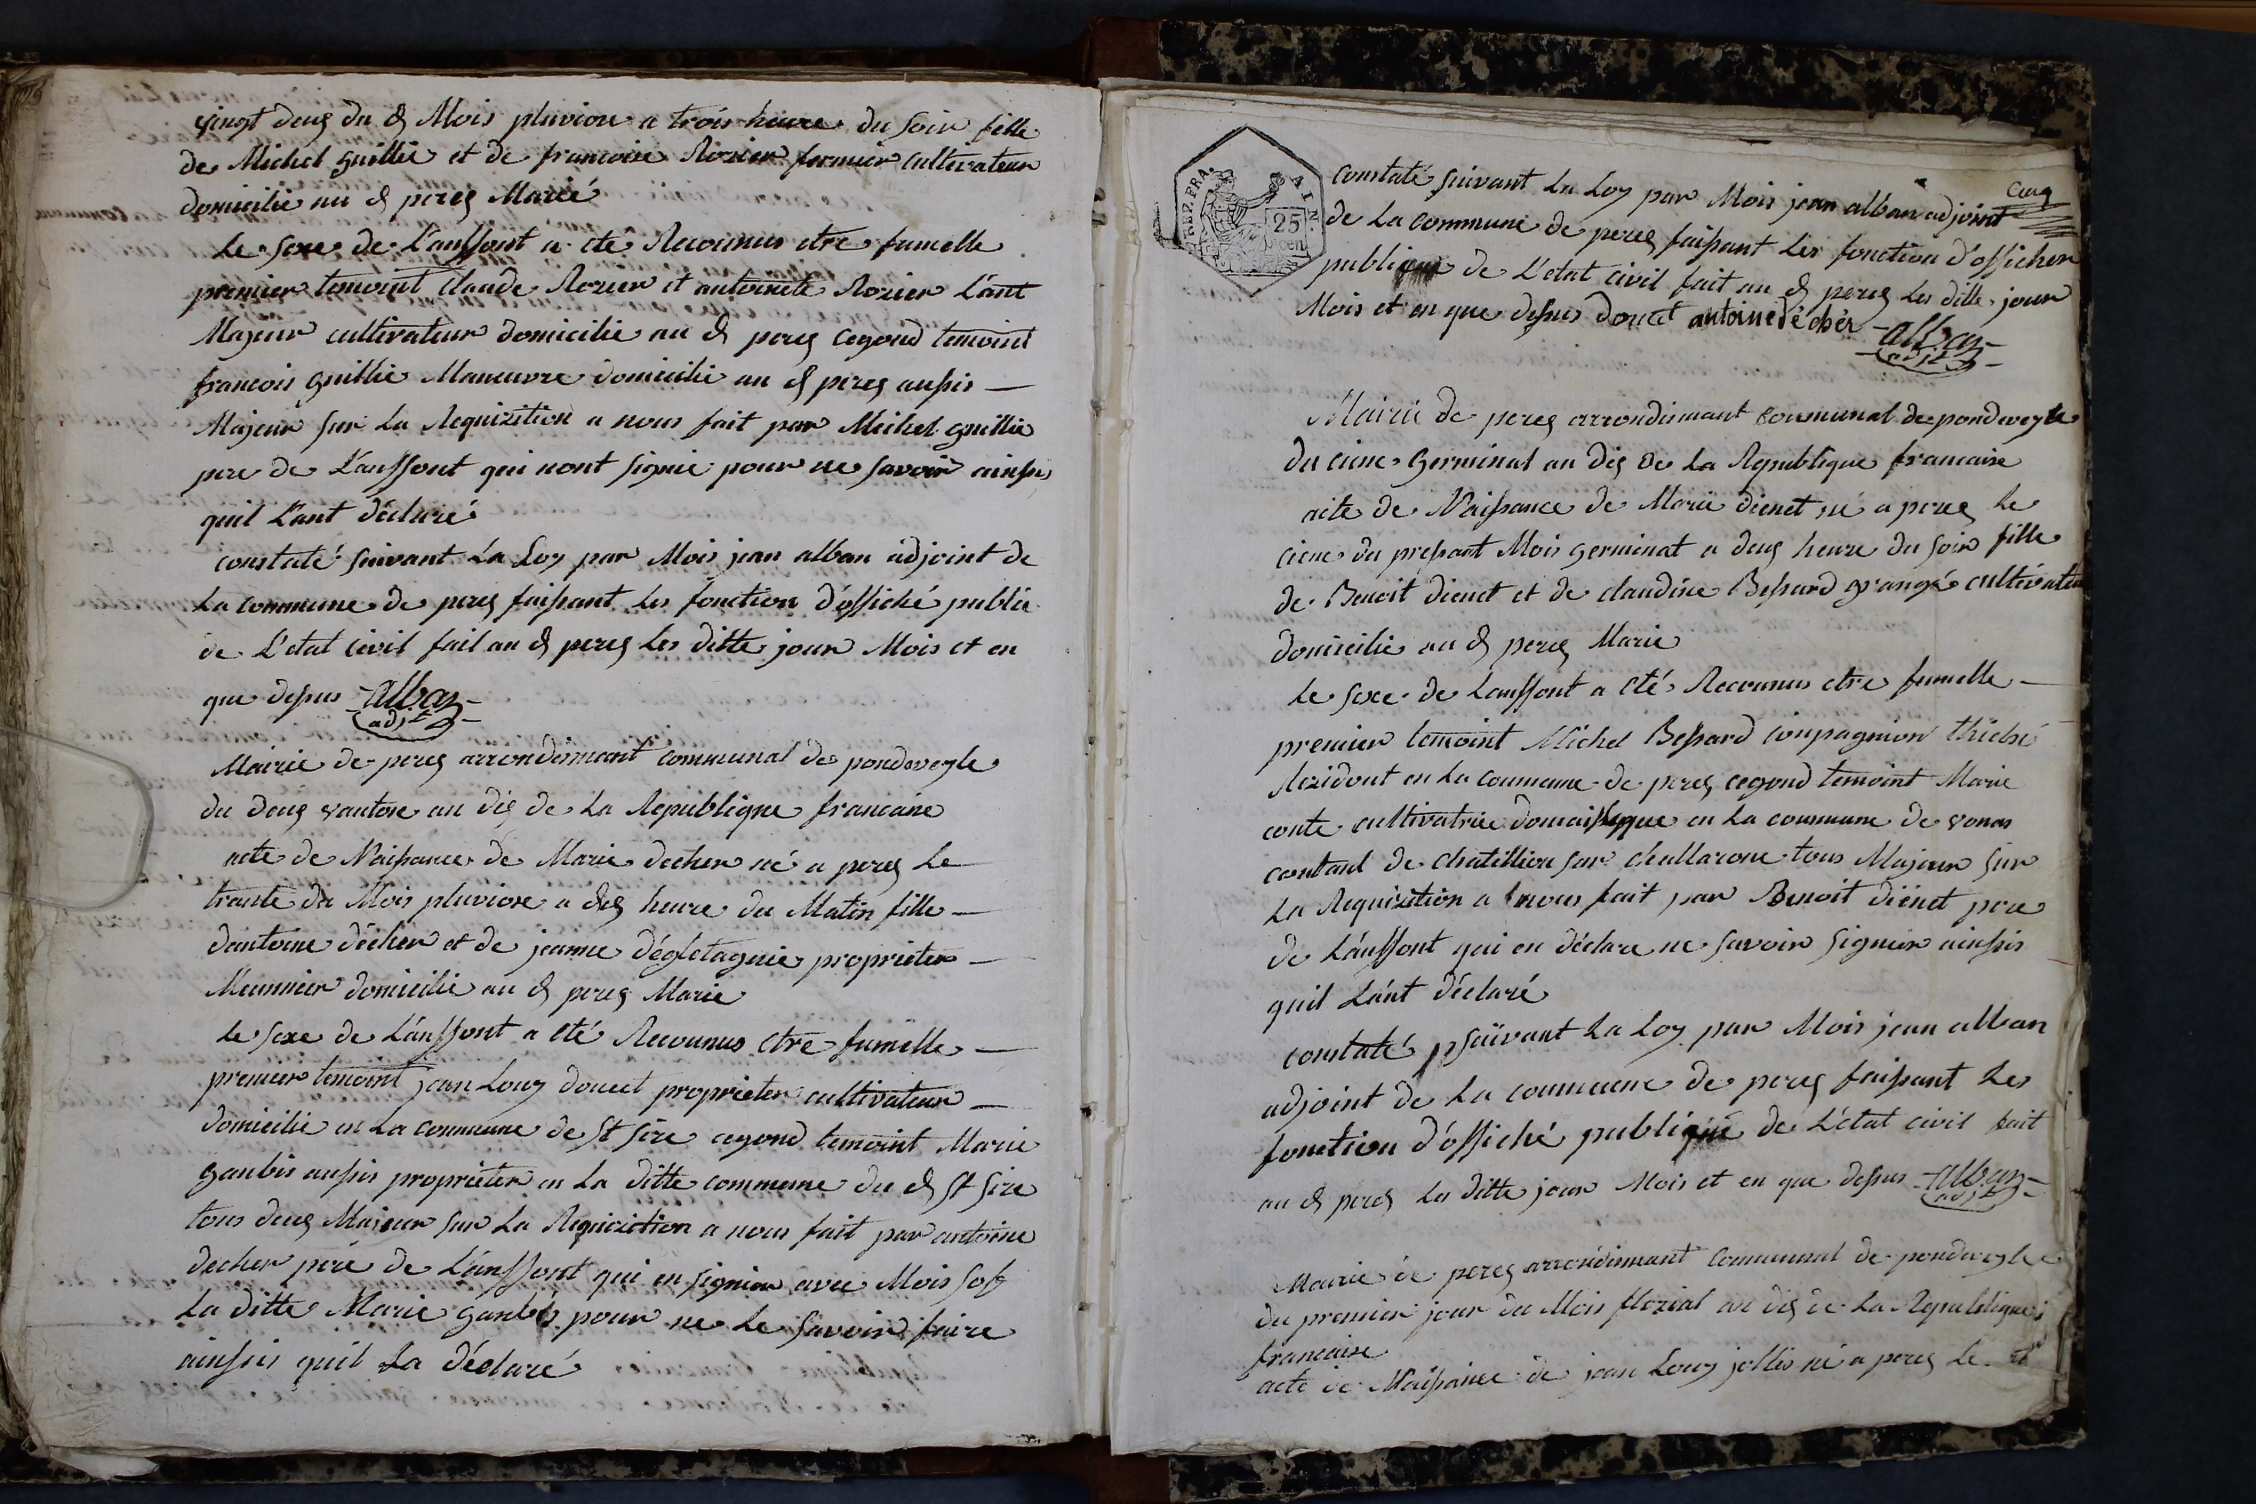 vingt deus du d Mois pluviose a trois heure du soir fille
de Michel guillie et de francoise Rozier fermier cultivateur
domicilie au d peres Marié
Le sexe de L'anffont a ete Recounus etre fumelle
premier temoint Claude Rozier et antoinete Rozier L'ant
Majeur cultivateur domicilie au d peres cegond temoint
francois guillie Maneuvre domicilie au d peres aussis
Majeur sur La Requizition a nous fait par Michel guillie
pere de L'anffont qui nont signie pour ne savoir ainssis
quil L'ant déclaré
constaté suivant La Loy par Mois jean alban adjoint de
La commune de peres faissant Les fonction d'offiché public
de L'etat civil fait au d peres Les ditte jour Mois et en
que dessus alban
adjt
Mairie de peres arrondissmant communal de pondeveyle
du deus vantose an dis de La Republique francaise
acte de Naissance de Marie decher né a peres Le
trante du Mois pluviose a dis heure du Matin fille
dantoine décher et de jeanne dégletagnie proprieter
Meunnier domicilie au d peres Marie
Le sexe de L'anffont a été Recounus etre fumelle
premier temoint jean Louy doucet proprieter cultivateur
domicilie en La commune de St sire cegond temoint Marie
gaubis aussis proprieter en La ditte commune du d St sire
tous deus Majeur sur La Requizition a nous fait par antoine
decher pere de L'anffont qui en signier avec Mois sof
La ditte Marie gaubis pour ne Le savoir faire
ainssis quil La déclaré
cinq
REP. FRA.
AIN.
25
cen
constaté suivant La Loy par Mois jean alban adjoint
de La commune de peres faissant Les fonction d'officher
publique de L'etat civil fait au d peres Les ditte jour
Mois et en que dessus doucet antoine décher alban
adjt
Mairie de peres arrondissmant communal de pondeveyle
du cinc Germinal an dis de La Republique francaise
acte de Naissance de Marie dienet né a peres Le
cinc du pressant Mois germinal a deus heure du soir fille
de Benoit dienet et de claudine Bessard grangé cultivateur
domicilie au d peres Marie
Le sexe de Lanffont a été Recounus etre fumelle
premier temoint Michel Bessard coupagnion thiché
Rezidont en La coumune de peres cegond temoint Marie
conte cultivatrice domaistique en La coumune de vonas
contant de chatillion sur challarone tous Majeur sur
La Requizition a nous fait par Benoit diénet pere
de L'anffont qui en déclare ne savoir signier ainssis
quil L'ant déclaré
constaté suivant La Loy par Mois jean alban
adjoint de La coumune de peres faissant Les
fonction d'offiché publique de L'état civil fait
au d peres Les ditte jour Mois et en que dessus alban
adjt
Mairie de peres arrondissmant communal de pondeveyle
du premier jour du Mois florial an dis de La Republique
francaise
acte de Naissance de jean Louy jollis né a peres Le